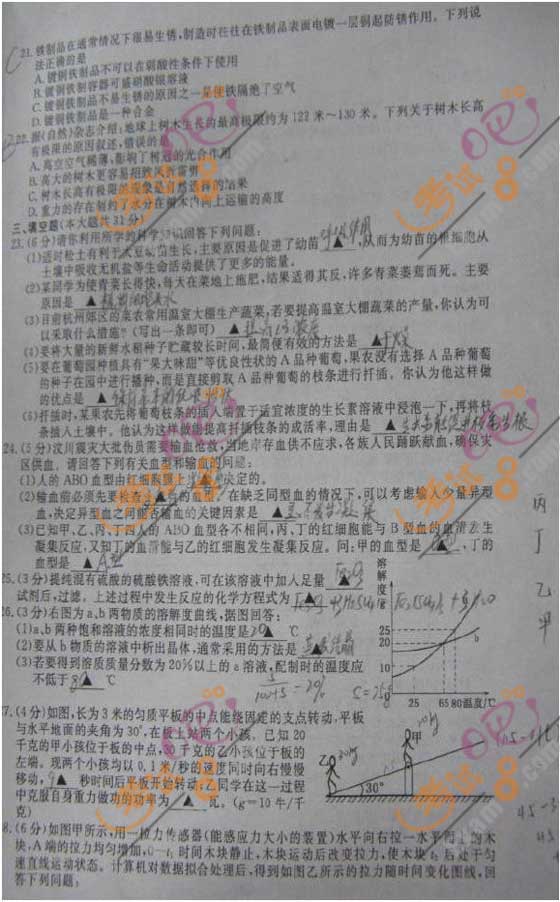 21.铁制品在通常情况下很易生锈,制造时往往在铁制品表面电镀一层铜起防锈作用。下列说
法正确的是
A.镀铜铁制品不可以在弱酸性条件下使用
B.镀铜铁制容器可盛硝酸银溶液
C.镀铜铁制品不易生锈的原因之一是使铁隔绝了空气
D.镀铜铁制品是一种合金
22.据《自然》杂志介绍:地球上树木生长的最高极限约为122米~130米。下列关于树木长高
有极限的原因叙述,错误的是
A.高空空气稀薄,影响了树冠的光合作用
B.高大的树木更容易招致风折雷劈
C.树木长高有极限的现象是自然选择的结果
D.重力的存在制约了水分在树木内向上运输的高度
三、填空题(本大题共31分)
23.(6分)请你利用所学的科学知识回答下列问题:
(1)适时松土有利于大豆幼苗生长,主要原因是促进了幼苗 ▲ ,从而为幼苗的根细胞从
土壤中吸收无机盐等生命活动提供了更多的能量。
(2)某同学为使青菜长得快,每天在菜地上施肥,结果适得其反,许多青菜萎蔫而死。主要
原因是 ▲
(3)目前杭州郊区的菜农常用温室大棚生产蔬菜,若要提高温室大棚蔬菜的产量,你认为可
以采取什么措施?(写出一条即可) ▲
(4)要将大量的新鲜水稻种子贮藏较长时间,最简便有效的方法是 ▲
(5)要在葡萄园种植具有“果大味甜”等优良性状的A品种葡萄,果农没有选择A品种葡萄
的种子在园中进行播种,而是直接剪取A品种葡萄的枝条进行扦插。你认为他这样做
的优点是 ▲
(6)扦插时,某果农先将葡萄枝条的插入端置于适宜浓度的生长素溶液中浸泡一下,再将枝
条插入土壤中。他认为这样做能提高扦插枝条的成活率,理由是 ▲
24.(3分)汶川震灾大批伤员需要输血抢救,当地库存血供不应求,各族人民踊跃献血,确保灾
区供血。请回答下列有关血型和输血的问题:
(1)人的ABO血型由红细胞膜上 ▲ 决定的。
(2)输血前必须先要检查 ▲ 的血型。在缺乏同型血的情况下,可以考虑输入少量异型
血,决定异型血之间能否输血的关键因素是 ▲
(3)已知甲、乙、丙、丁四人的ABO血型各不相同,丙、丁的红细胞能与B型血的血清发生
凝集反应,又知丁的血清能与乙的红细胞发生凝集反应。问:甲的血型是 ▲ ,丁的
血型是 ▲ A型
25.(3分)提纯混有硫酸的硫酸铁溶液,可在该溶液中加入足量 ▲
试剂后,过滤。上述过程中发生反应的化学方程式为
26.(3分)右图为a、b两物质的溶解度曲线,据图回答:
(1)a、b两种饱和溶液的浓度相同时的温度是 ▲ ℃
(2)要从b物质的溶液中析出晶体,通常采用的方法是 ▲
(3)若要得到溶质质量分数为20%以上的a溶液,配制时的温度应
不低于 ▲ ℃
溶解度/克
25
20
b
0 25 65 80 温度/℃
27.(4分)如图,长为3米的匀质平板的中点能绕固定的支点转动,平板
与水平地面的夹角为30°,在板上站两个小孩。已知20
千克的甲小孩位于板的中点,30千克的乙小孩位于板的
左端。现两个小孩均以0.1米/秒的速度同时向右慢慢
移动, ▲ 秒时间后平板开始转动;乙同学在这一过程
中克服自身重力做功的功率为 ▲ 瓦。(g=10牛/千
克)
甲
乙
30°
28.(6分)如图甲所示,用一拉力传感器(能感应力大小的装置)水平向右拉一水平面上的木
块,A端的拉力均匀增加,0~t₁时间木块静止,木块运动后改变拉力,使木块t₂后处于匀
速直线运动状态。计算机对数据拟合处理后,得到如图乙所示的拉力随时间变化图线,回
答下列问题:
丙
丁
乙
甲